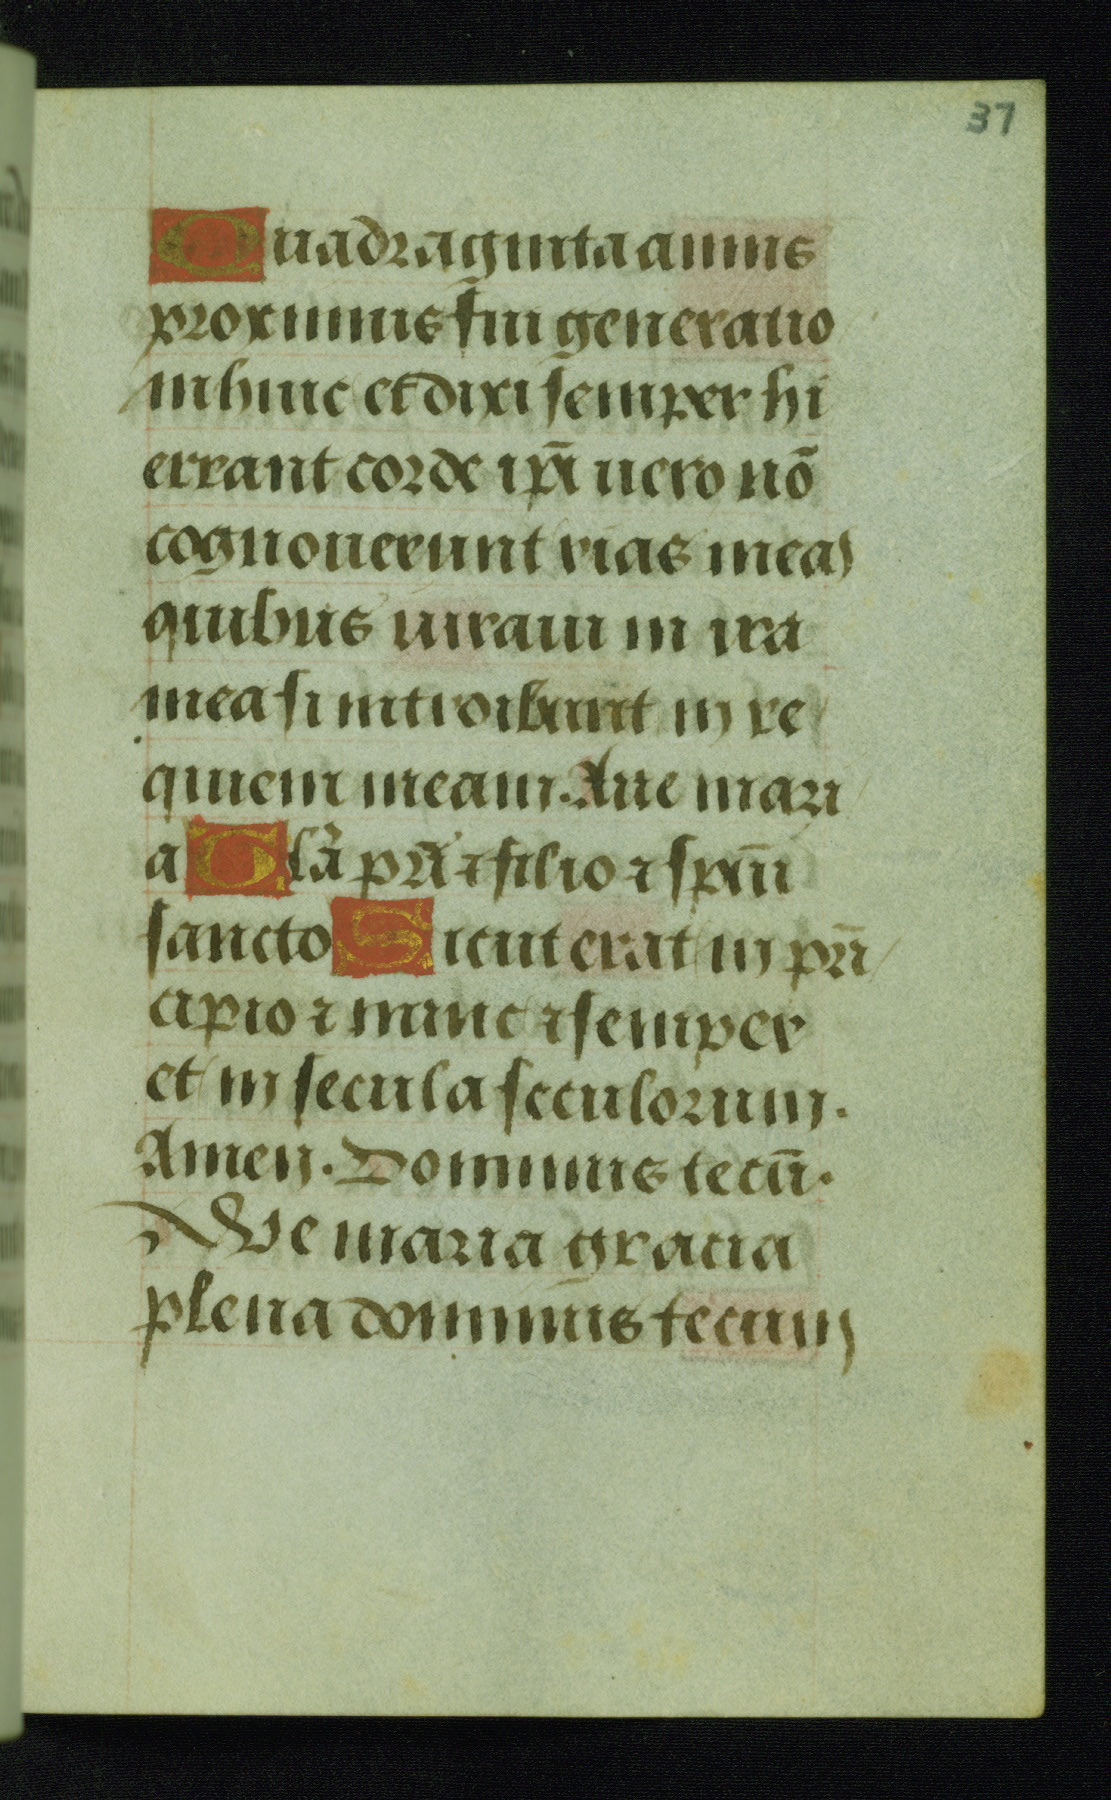 37
Quadraginta annis
proximus fui generatio
ni huic et dixi semper hi
errant corde ip̃i uero nõ
cognouerunt vias meas
quibus iuraui in ira
mea si introibunt in re
quiem meam. Aue mari
a Glã pr̃i ⁊ filio ⁊ spũi
sancto Sicut erat in prĩ
cipio ⁊ nunc ⁊ semper
et in secula seculorum.
Amen. Dominus tecũ.
Ave maria gracia
plena dominus tecum